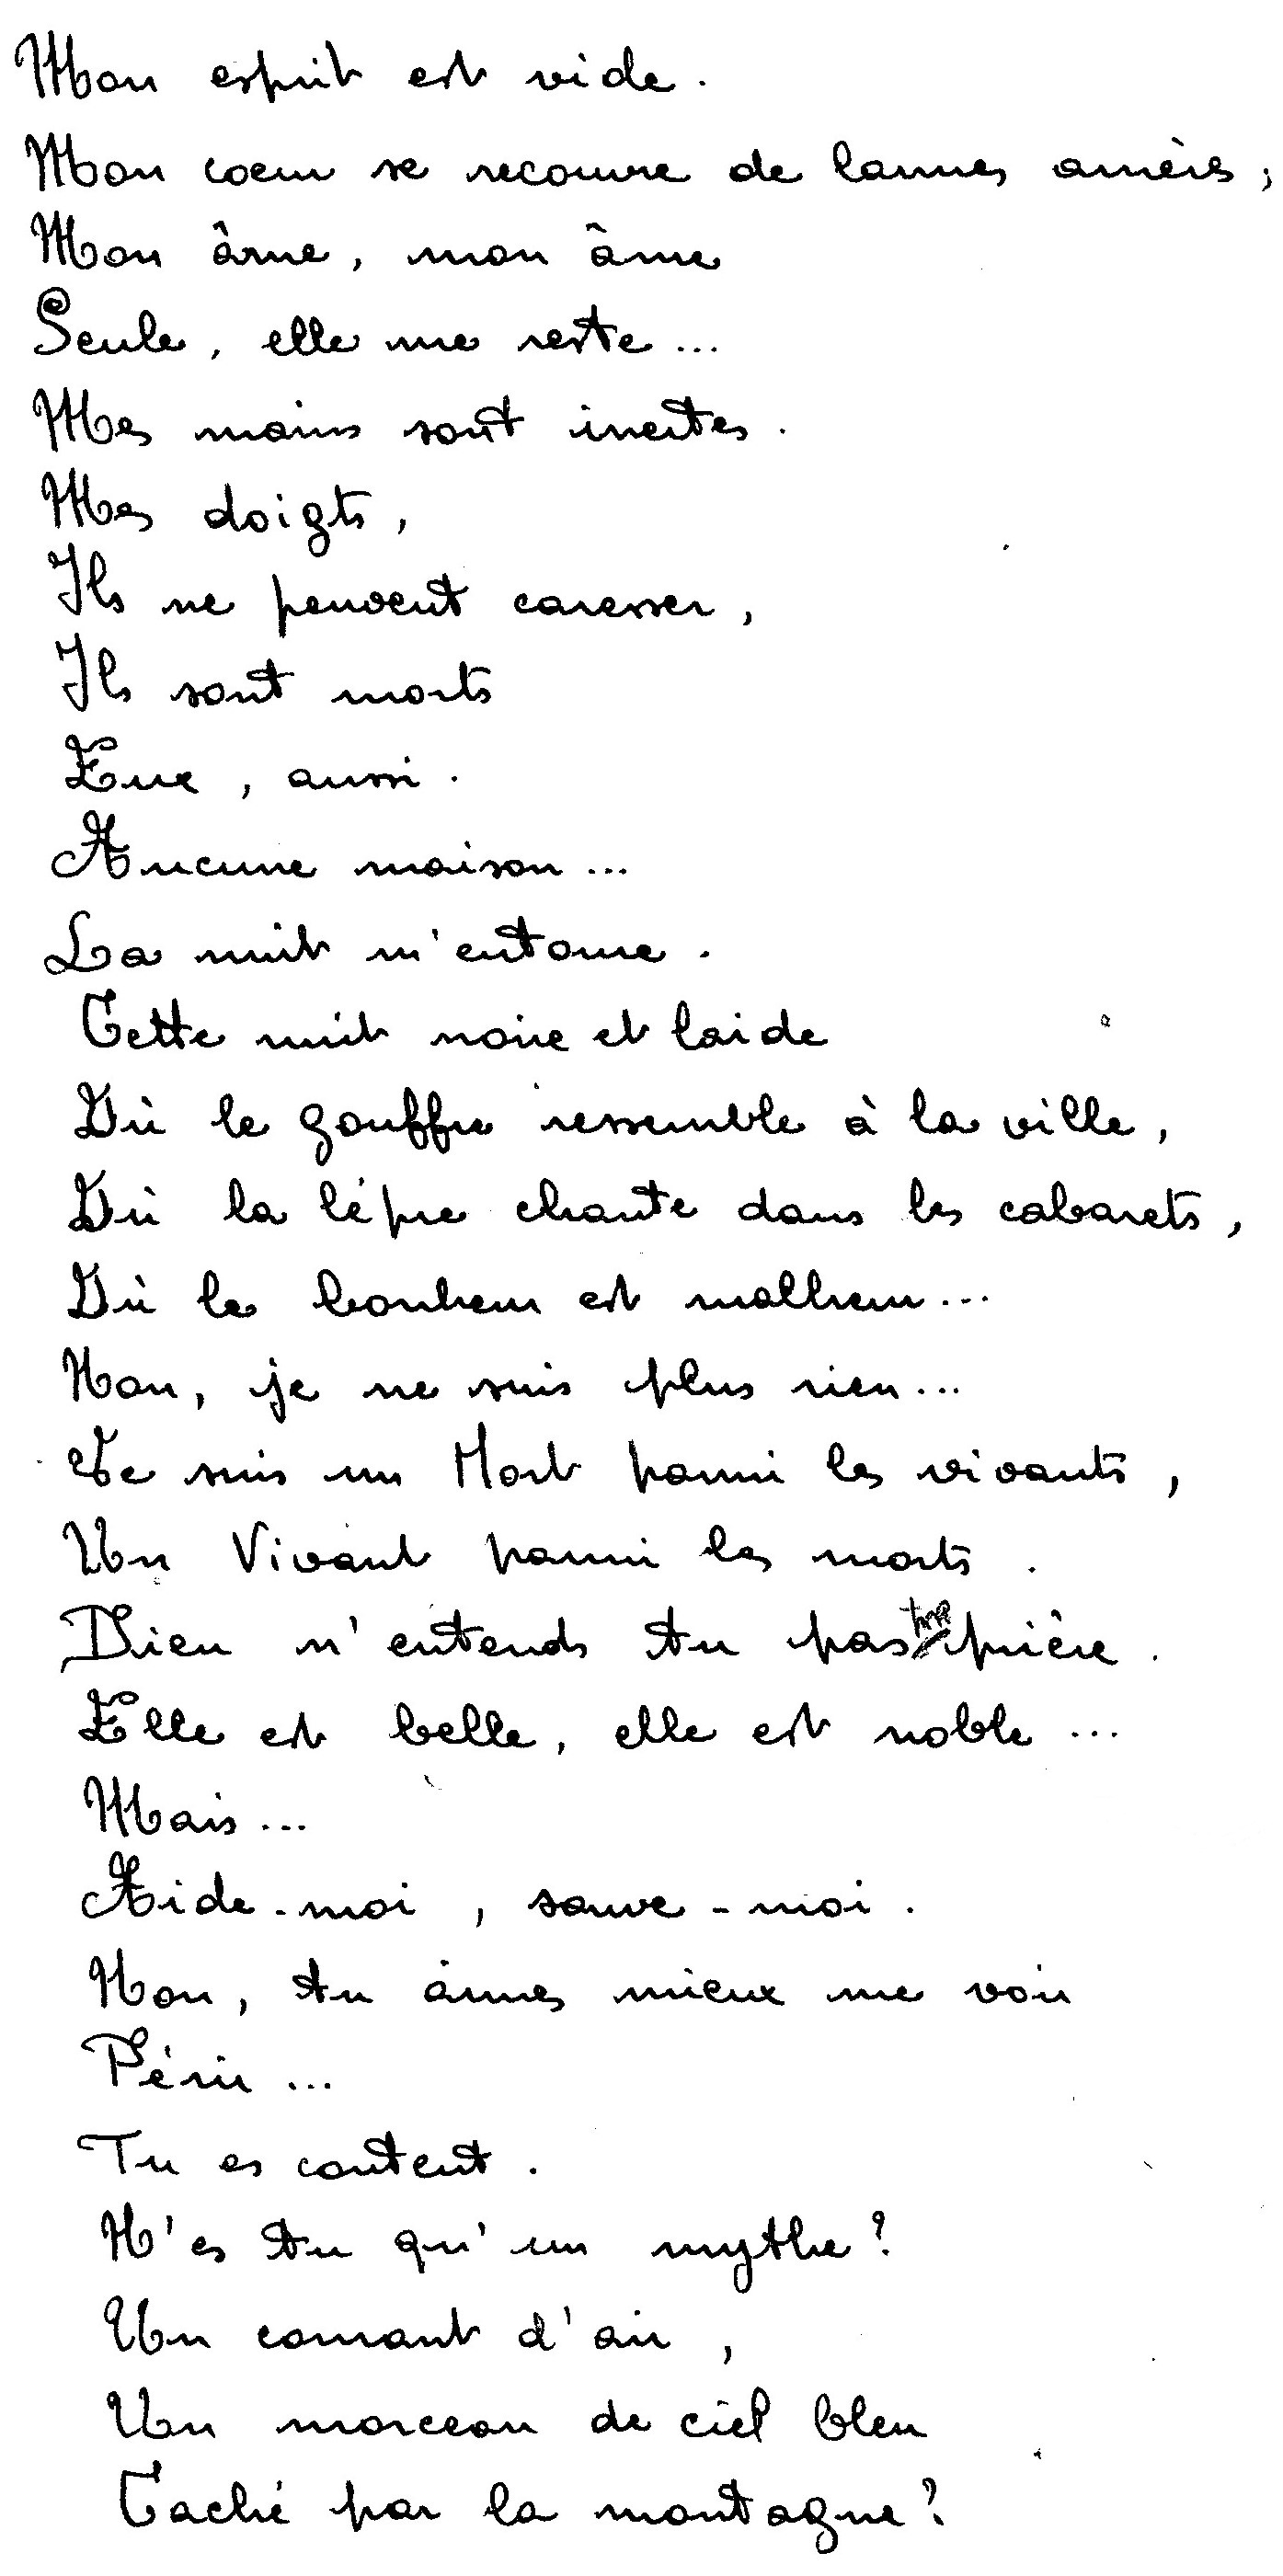 Mon esprit est vide.
Mon coeur se recouvre de larmes amères,
Mon âme, mon âme
Seule, elle me reste...
Mes mains sont inertes.
Mes doigts,
Ils ne peuvent caresser,
Ils sont morts
Eux, aussi.
Aucune maison...
La nuit m'entoure.
Cette nuit noire et laide
Où le gouffre ressemble à la ville,
Où la lépre chante dans les cabarets,
Où le bonheur est malheur...
Non, je ne suis plus rien...
Je suis un Mort parmi les vivants,
Un Vivant parmi les morts.
Dieu n'entends tu pas ma prière.
Elle est belle, elle est noble...
Mais...
Aide-moi, sauve-moi.
Non, tu aimes mieux me voir
Périr...
Tu es content.
N'es tu qu'un mythe?
Un courant d'air,
Un morceau de ciel bleu
Caché par la montagne?